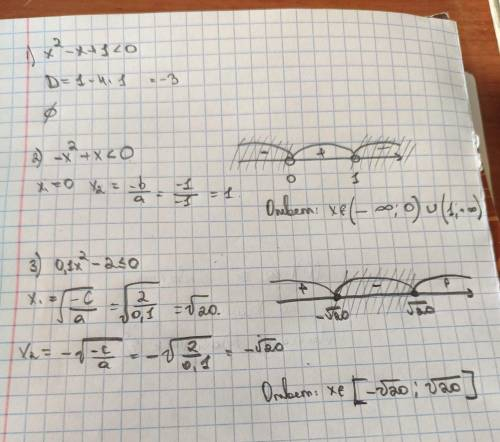 1) x² - x + 1 < 0
D = 1 - 4·1 = -3
∅
2) -x² + x < 0
x = 0 x₂ = -b/a = -1/-1 = 1
- + -
0 1
Ответ: x∈(-∞; 0) ∪ (1; +∞)
3) 0,1x² - 2 ≤ 0
x₁ = √(-c/a) = √(2/0,1) = √20.
+ - +
-√20 √20
x₂ = -√(-c/a) = -√(2/0,1) = -√20
Ответ: x∈ [-√20 ; √20]